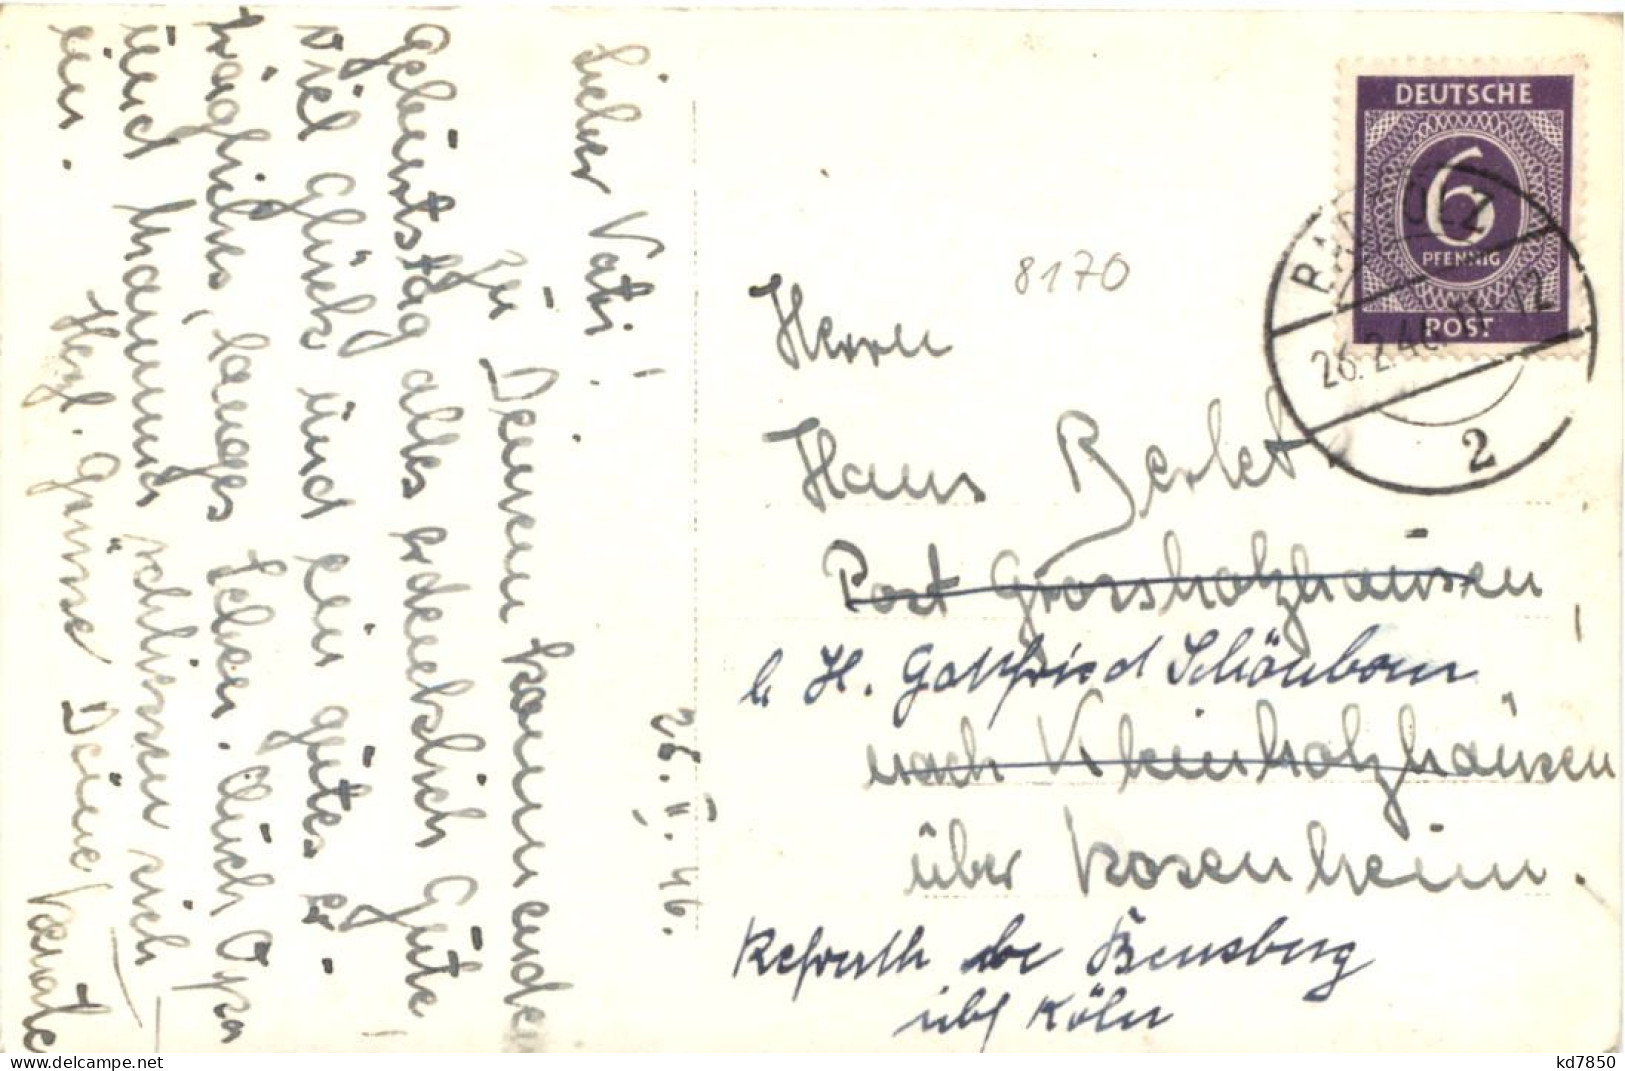 26.II.46.
Lieber Vati!
Zu Deinem kommenden
Geburtstag alles erdenklich Gute
viel Glück und ein gutes er-
trägliches, langes Leben. Auch Opa
und Mammi schliessen sich
ein.
Herzl. Grüsse Deine Renate
DEUTSCHE
6
PFENNIG
POST
BAD TÖLZ
26.2.46. 11-12
2
8170
Herrn
Hans Berlet
Post Grossholzhausen
b. H. Gottfried Schönborn
nach Kleinholzhausen
über Rosenheim.
Refrath bei Bensberg
üb/ Köln
https://www.delcampe.net
kd7850